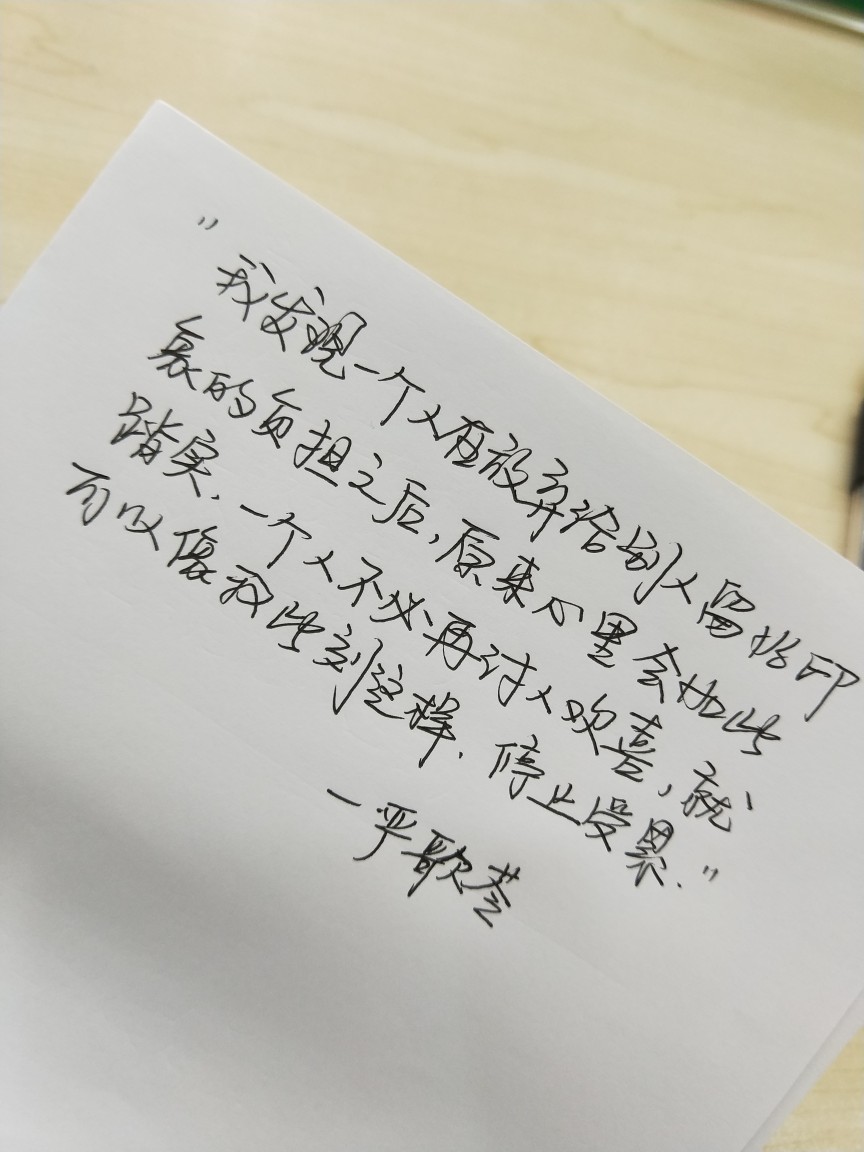 "我发现一个人在放弃给别人留好印
象的负担之后,原来心里会如此
踏实.一个人不必再讨人欢喜,就
可以像我此刻这样.停止受累."
—严歌苓